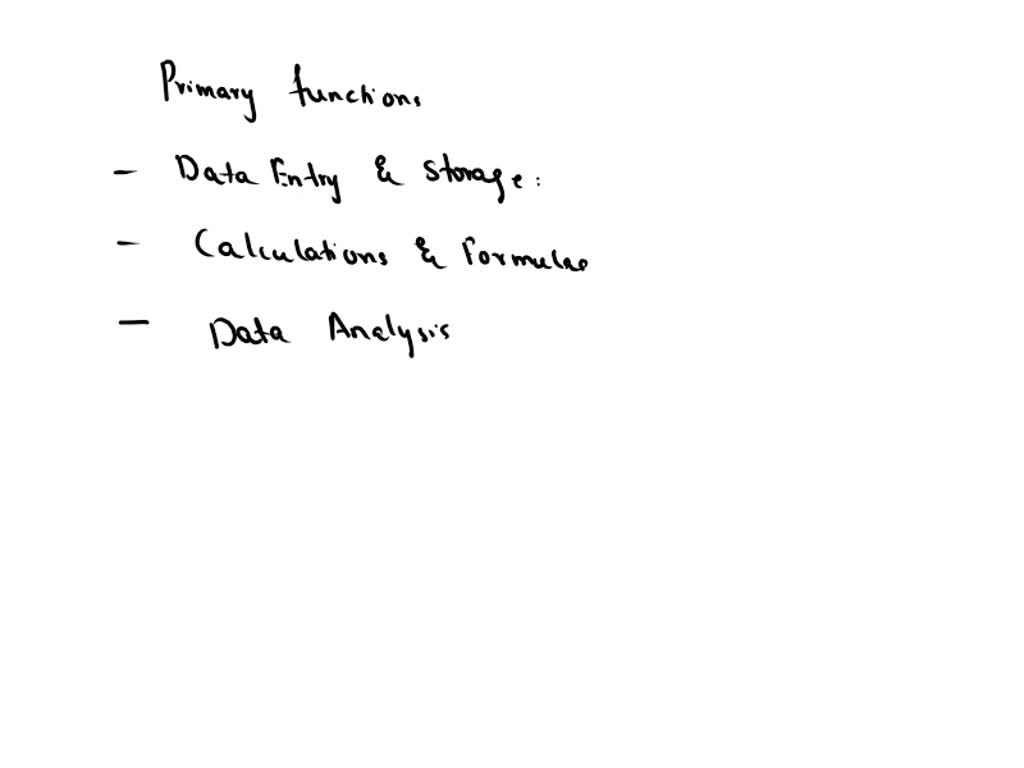 Primary functions
- Data Entry & Storage:
- Calculations & Formulae
- Data Analysis